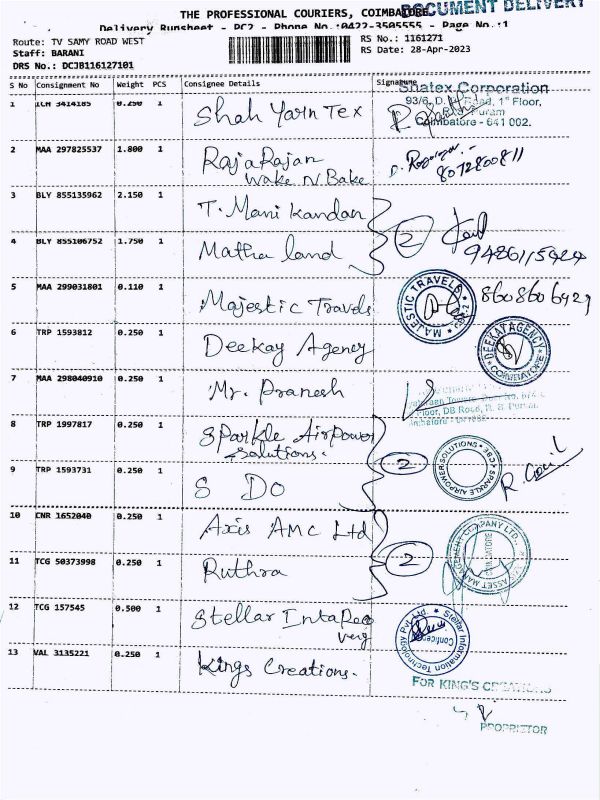 THE PROFESSIONAL COURIERS, COIMBATORE
DOCUMENT DELIVERY
Delivery Runsheet - PC2 - Phone No.:0422-3505555 - Page No.:1
Route: TV SAMY ROAD WEST
Staff: BARANI
DRS No.: DCJB116127101
RS No.: 1161271
RS Date: 28-Apr-2023
S No Consignment No Weight PCS Consignee Details Signature
1 ICH 3414185 0.250 1 Shah Yarn Tex
Shatex Corporation
93/6, D. Road, 1st Floor,
Puram
Coimbatore - 641 002.
2 MAA 297825537 1.800 1 RajaRajan
Wake N Bake
8072800811
3 BLY 855135962 2.150 1 T. Mani Kandan
4 BLY 855106752 1.750 1 Matha land
2
9486115424
5 MAA 299031801 0.110 1 Majestic Travels
MAJESTIC TRAVELS
8608606929
6 TRP 1593812 0.250 1 Deekay Agency
DEEKAY AGENCY
COIMBATORE
7 MAA 298040910 0.250 1 Mr. Pranesh
Floor, DB Road, R. S. Puram,
8 TRP 1997817 0.250 1 Sparkle Airpower
Solutions.
2
SPARKLE AIRPOWER SOLUTIONS
9 TRP 1593731 0.250 1 S Do
10 CNR 1652040 0.250 1 Axis AMC Ltd
2
ASSET MANAGEMENT COMPANY LTD.
COIMBATORE
11 TCG 50373998 0.250 1 Ruthra
12 TCG 157545 0.500 1 Stellar
Stellar Information Technology Pvt. Ltd.
13 VAL 3135221 0.250 1 Kings Creations.
FOR KING'S CREATIONS
PROPRIETOR